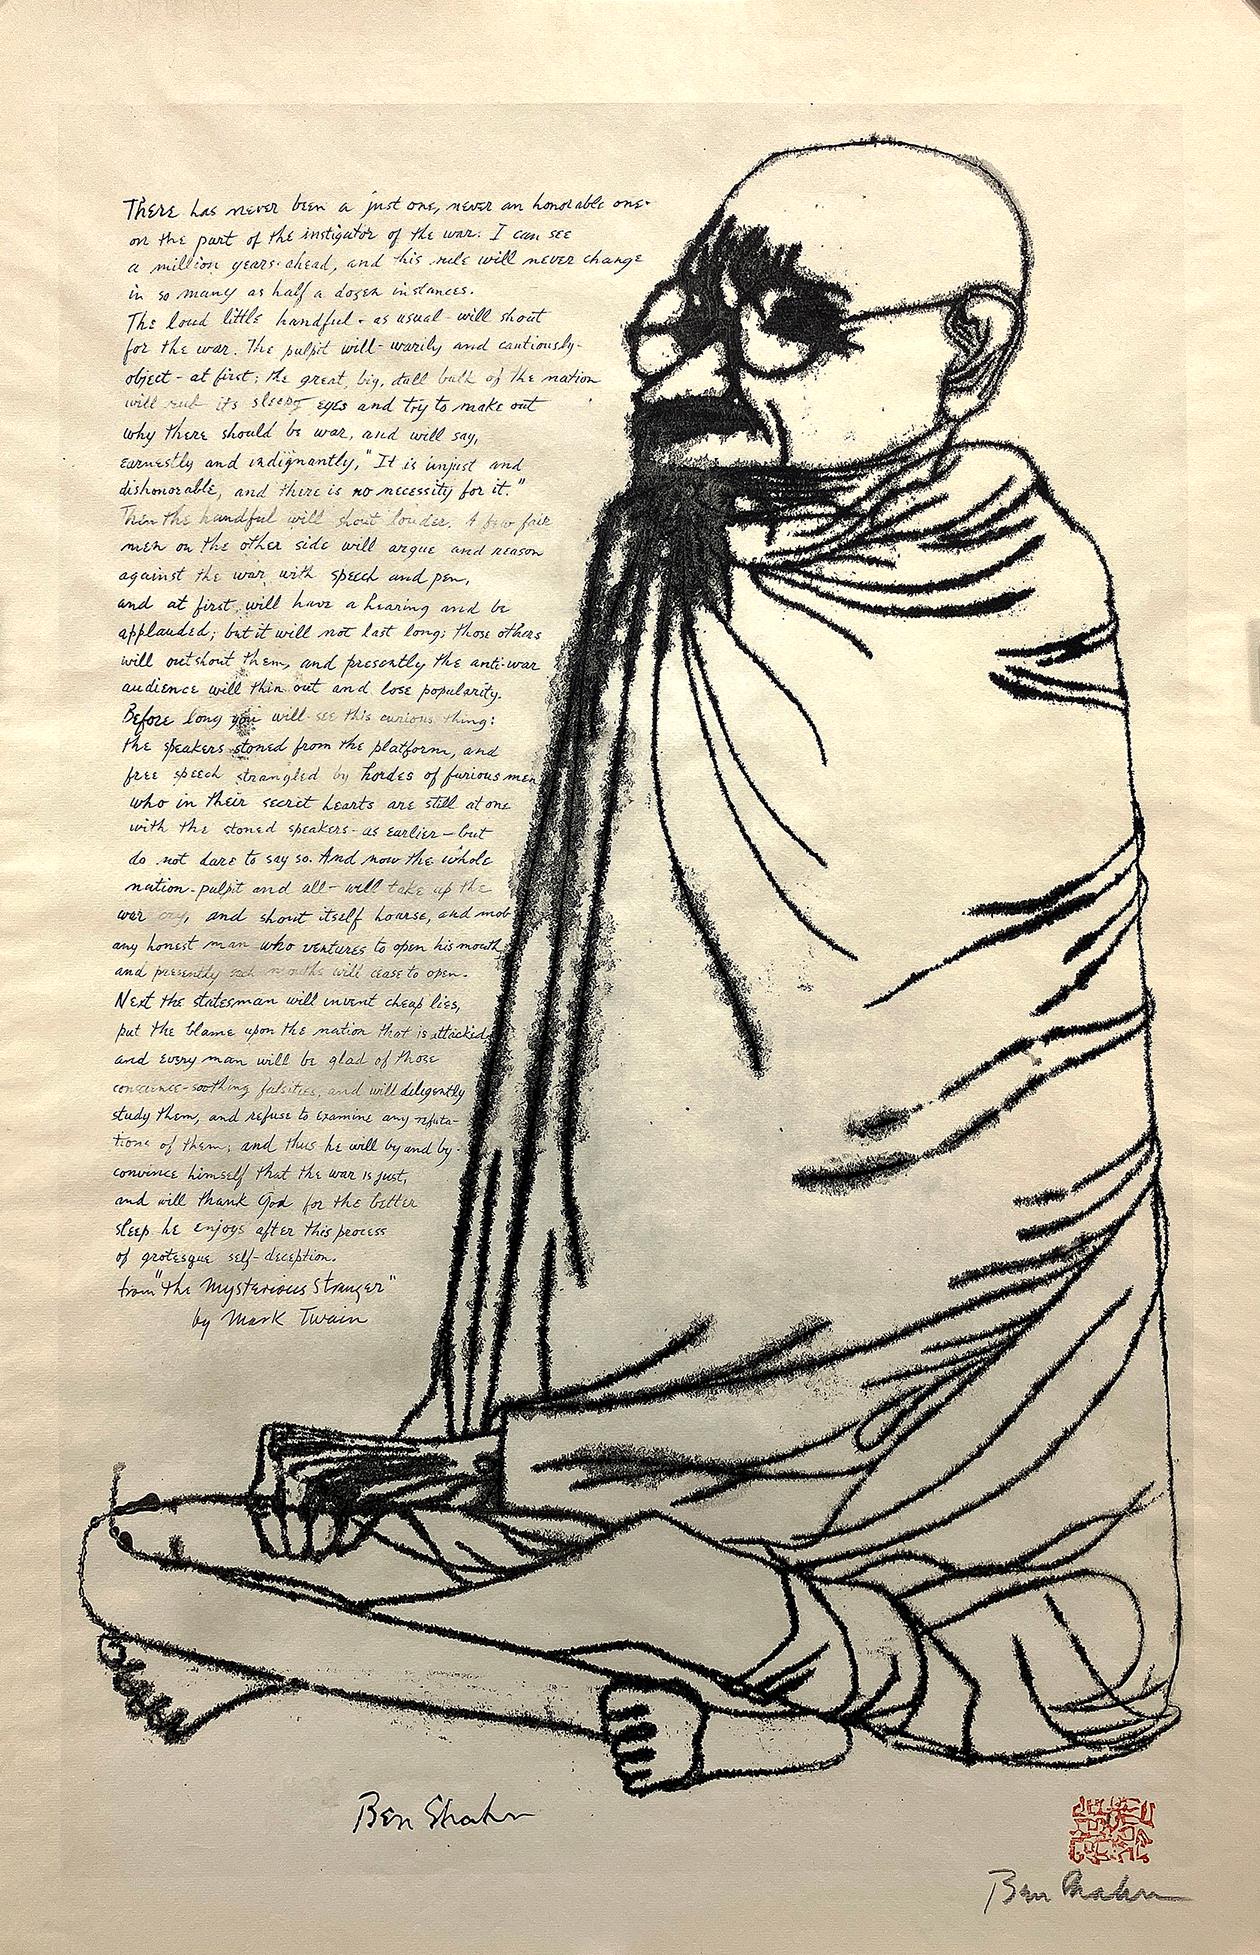 There has never been a just one, never an honorable one-
on the part of the instigator of the war. I can see
a million years ahead, and this rule will never change
in so many as half a dozen instances.
The loud little handful - as usual - will shout
for the war. The pulpit will - warily and cautiously -
object - at first; the great, big, dull bulk of the nation
will rub its sleepy eyes and try to make out
why there should be war, and will say,
earnestly and indignantly, "It is unjust and
dishonorable, and there is no necessity for it."
Then the handful will shout louder. A few fair
men on the other side will argue and reason
against the war with speech and pen,
and at first will have a hearing and be
applauded; but it will not last long; those others
will outshout them, and presently the anti-war
audience will thin out and lose popularity.
Before long you will see this curious thing:
the speakers stoned from the platform, and
free speech strangled by hordes of furious men
who in their secret hearts are still at one
with the stoned speakers - as earlier - but
do not dare to say so. And now the whole
nation - pulpit and all - will take up the
war cry, and shout itself hoarse, and mob
any honest man who ventures to open his mouth
and presently such mouths will cease to open.
Next the statesman will invent cheap lies,
put the blame upon the nation that is attacked,
and every man will be glad of those
conscience-soothing falsities, and will diligently
study them, and refuse to examine any refuta-
tions of them; and thus he will by and by
convince himself that the war is just,
and will thank God for the better
sleep he enjoys after this process
of grotesque self-deception.
from "The Mysterious Stranger"
by Mark Twain
Ben Shahn
Ben Shahn